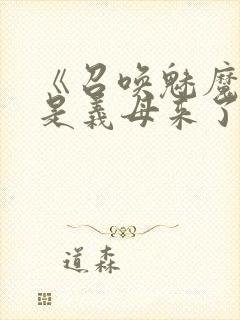 《召唤魅魔
是义母来了
道森